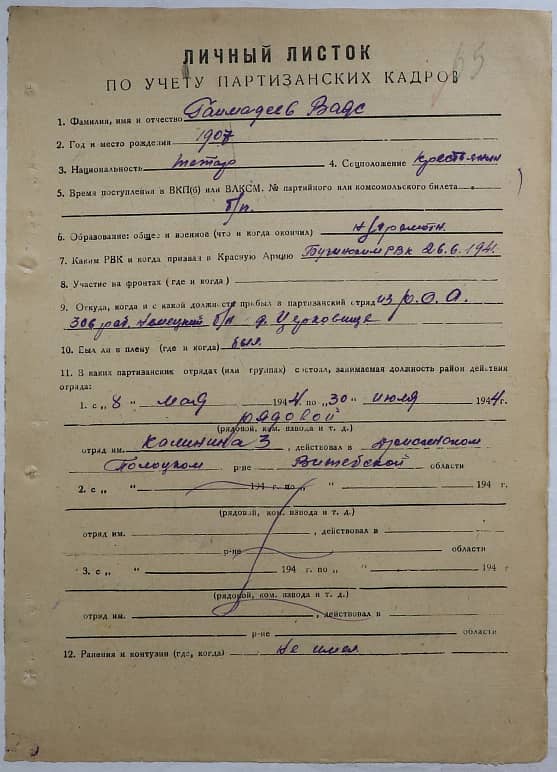 65
ЛИЧНЫЙ ЛИСТОК
ПО УЧЕТУ ПАРТИЗАНСКИХ КАДРОВ
1. Фамилия, имя и отчество
2. Год и место рождения 1907
3. Национальность татар 4. Соцположение крестьянин
5. Время поступления в ВКП(б) или ВЛКСМ. № партийного или комсомольского билета
б/п.
6. Образование: общее и военное (что и когда окончил) н/грамотн.
7. Каким РВК и когда призван в Красную Армию РВК 26.6.1941.
8. Участие на фронтах (где и когда)
9. Откуда, когда и с какой должности прибыл в партизанский отряд из Р.О.А.
306 немецкий б/н д. Церковище
10. Был ли в плену (где и когда) был
11. В каких партизанских отрядах (или группах) состоял, занимаемая должность район действия
отряда:
1. с „ 8 “ мая 1944 г. по „30“ июля 1944 г.
рядовой
(рядовой, ком. взвода и т. д.)
отряд им. Калинина 3, действовал в
Полоцком р-не Витебской области
2. с „ “ 194 г. по „ “ 194 г.
(рядовой, ком. взвода и т. д.)
отряд им. , действовал в
р-не области
3. с „ “ 194 г. по „ “ 194 г
(рядовой, ком. взвода и т. д.)
отряд им. , действовал в
р-не области
12. Ранения и контузии (где, когда) не имел